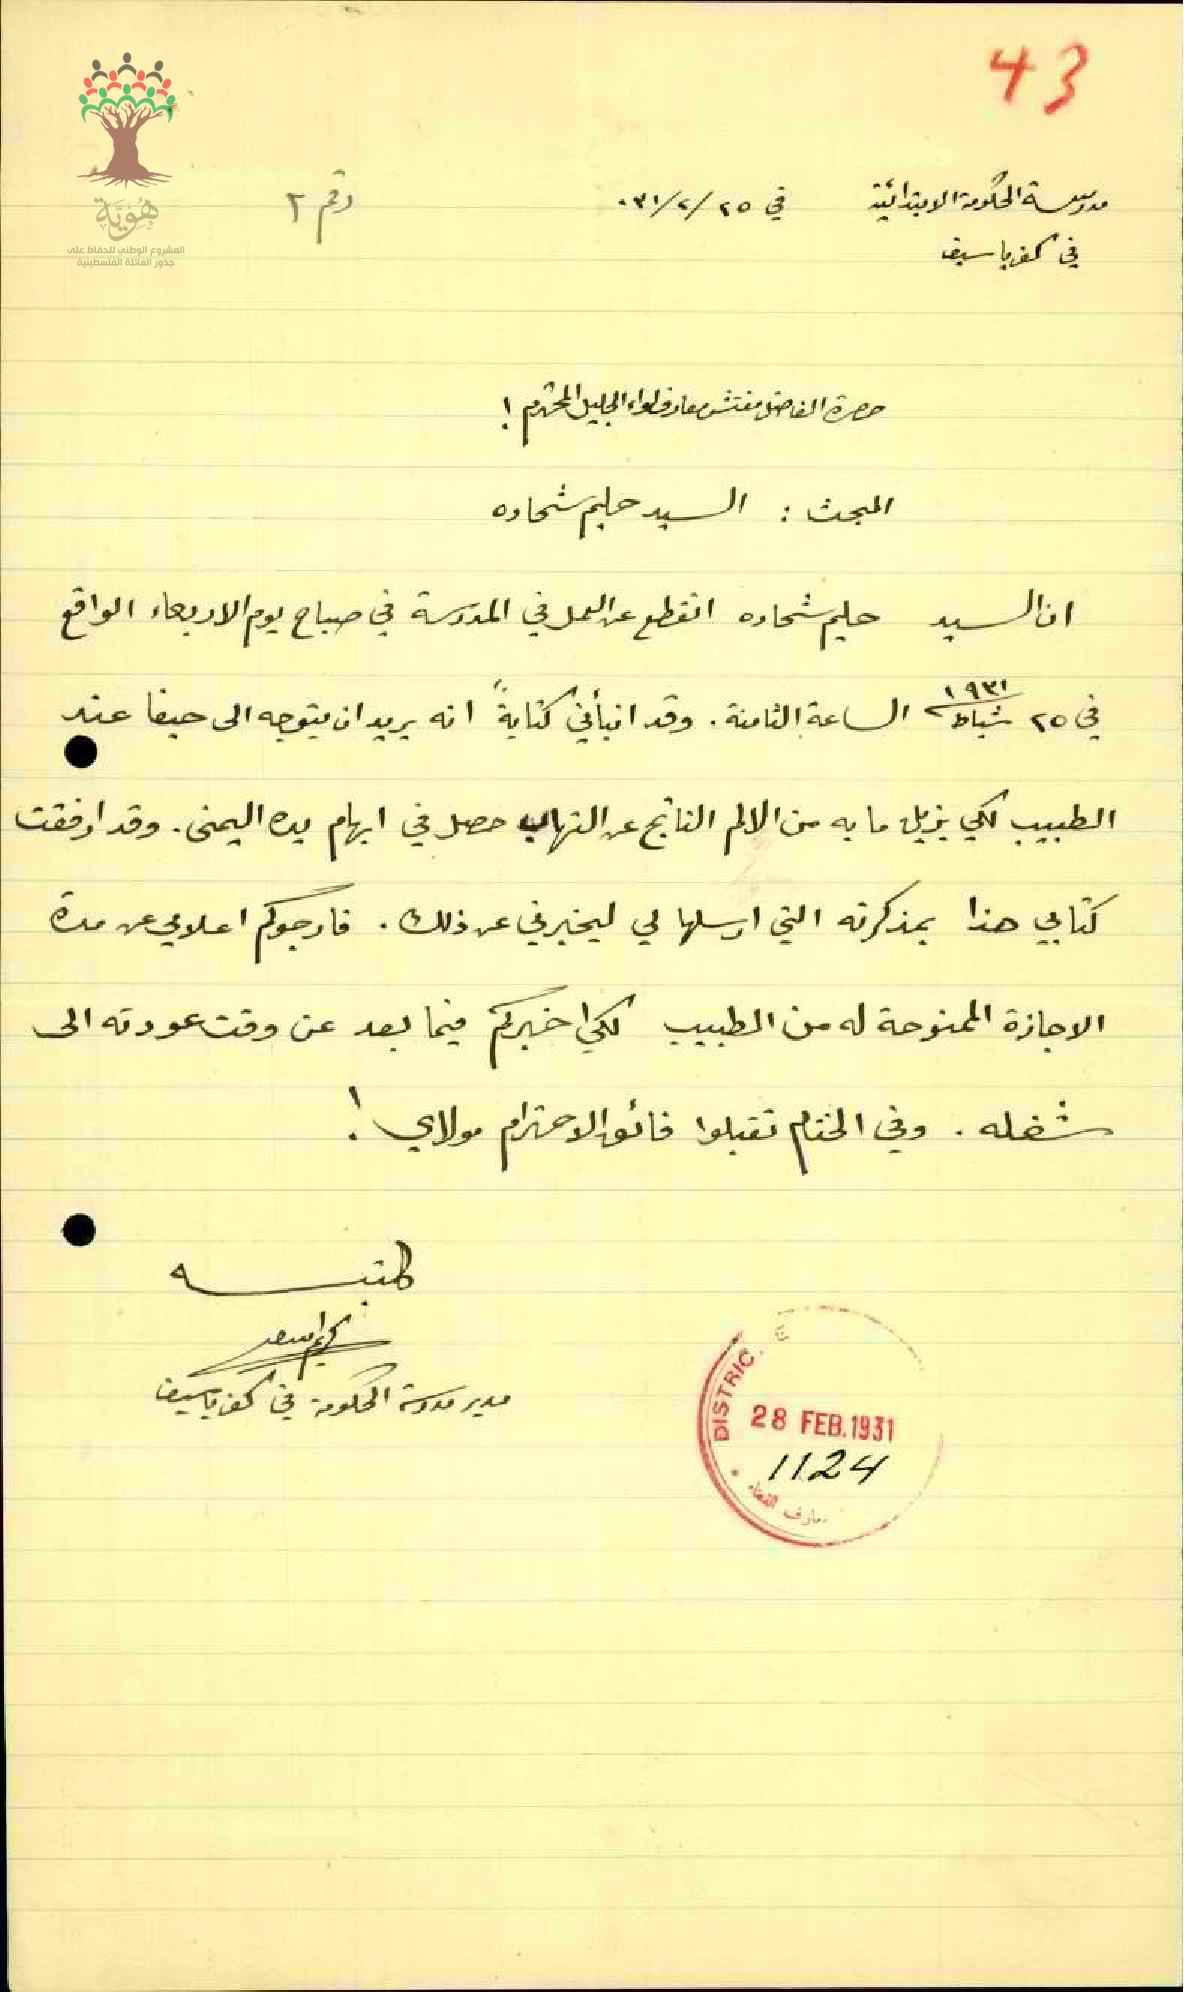 43
هُوِيَّة
المشروع الوطني للحفاظ على
جذور العائلة الفلسطينية
مدرسة الحكومة الابتدائية في ٢٥/٢/٩٣١ رقم ٢
في كفر ياسيف
حضرة الفاضل مفتش معارف لواء الجليل المحترم !
المبحث : السيد حليم شحاده
ان السيد حليم شحاده انقطع عن العمل في المدرسة في صباح يوم الاربعاء الواقع
في ٢٥ شباط ١٩٣١ الساعة الثامنة . وقد انبأني كتابةً انه يريد ان يتوجه الى حيفا عند
الطبيب لكي يزيل ما به من الالم الناتج عن التهاب حصل في ابهام يده اليمنى . وقد ارفقت
كتابي هذا بمذكرته التي ارسلها لي ليخبرني عن ذلك . فارجوكم اعلامي عن مدة
الاجازة الممنوحة له من الطبيب لكي اخبركم فيما بعد عن وقت عودته الى
شغله . وفي الختام تقبلوا فائق الاحترام مولاي !
كتبه
مدير مدرسة الحكومة في كفر ياسيف
DISTRIC
28 FEB. 1931
1124